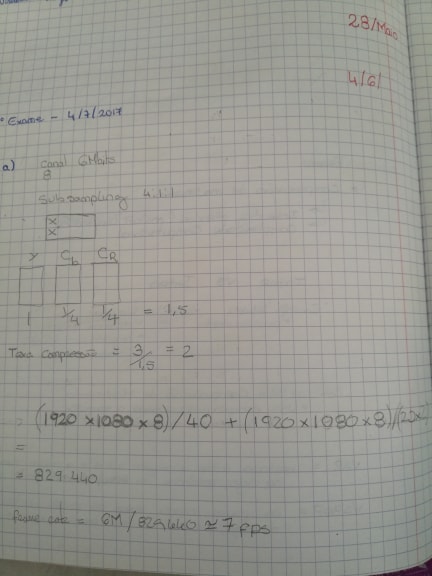 23/Maio
4/6/
Exame - 4/7/2017
a) Canal 6Mbits
8
Subsampling 4:1:1
X
X
Y Cb CR
1 1/4 1/4 = 1,5
Taxa Compressão = 3/1,5 = 2
(1920 x 1080 x 8)/40 + (1920 x 1080 x 8)/
=
= 829.440
frame rate = 6M/829.440 ≃ 7 fps